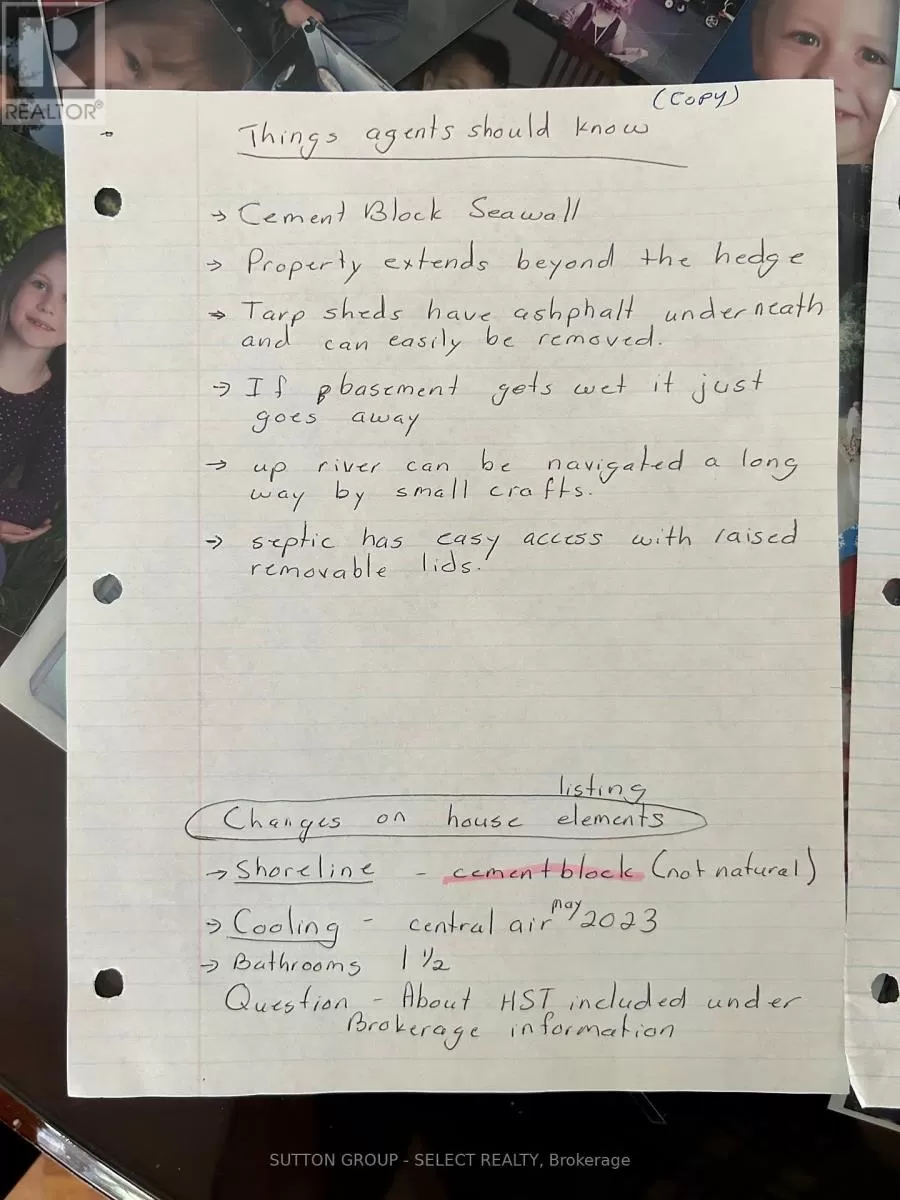 R
REALTOR®
(COPY)
Things agents should know
→ Cement Block Seawall
→ Property extends beyond the hedge
→ Tarp sheds have ashphalt underneath
and can easily be removed.
→ If basement gets wet it just
goes away
→ up river can be navigated a long
way by small crafts.
→ septic has easy access with raised
removable lids.
listing
Changes on house elements
→ Shoreline - cement block (not natural)
→ Cooling - central air may 2023
→ Bathrooms 1 ½
Question - About HST included under
Brokerage information
SUTTON GROUP - SELECT REALTY, Brokerage